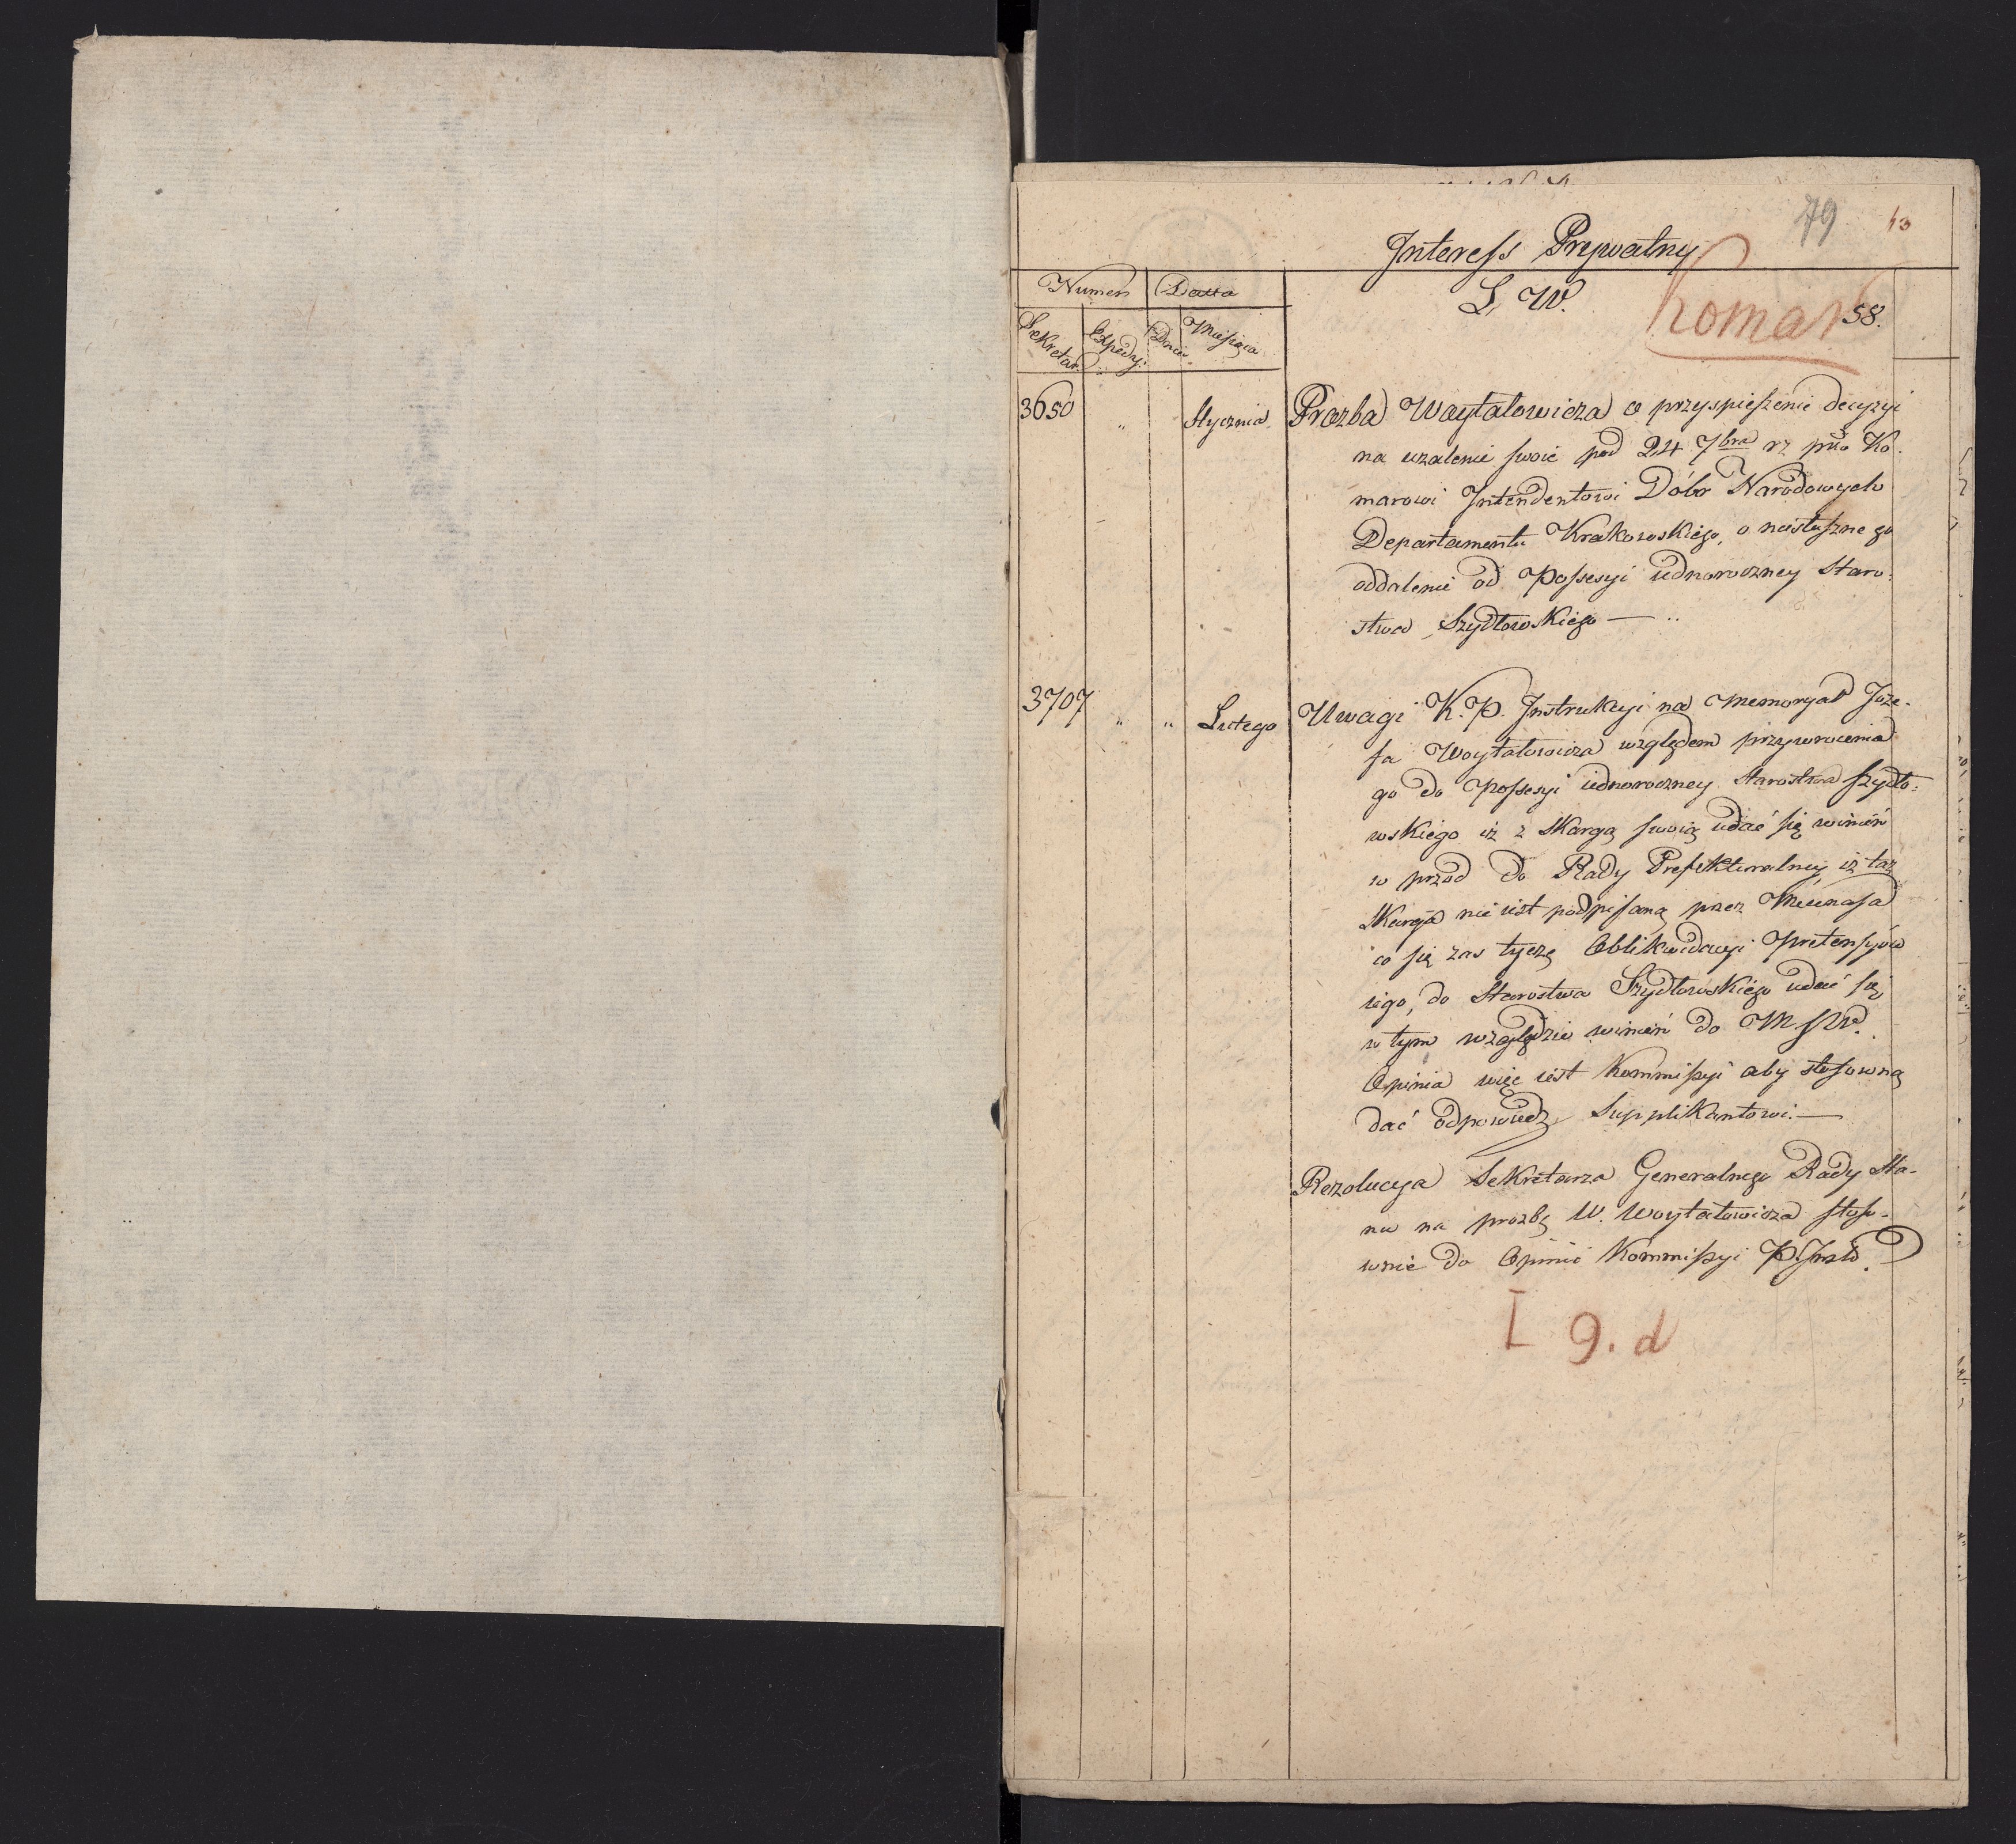 79 43
Interess Prywatny
Numer Datta L. W. Komar 58.
Sekretar. Expedy. Dnia Miesiąca
3650 " Stycznia Prozba Woytalowicza o przyspieszenie decyzyi
na uzalenie swoie pod 24 7bra rz pko Ko.
marowi Intendentowi Dóbr Narodowych
Departamentu Krakowskiego, o niesłuszne go
oddalenie od Possesyi iednoroczney Staro:
stwa Szydłowskiego — ..
3707 " " Lutego Uwagi K. P. Instrukcyi na Memoryał Joze-
fa Woytalowicza względem przywrocenia
go do Possesyi iednoroczney Starostwa Szydło:
wskiego iż z Skargą swoią udać się winien
w przod do Rady Prefekturalney, iż taż
Skarga nie iest podpisaną przez Mecenasa
co się zas tyczę Oblikwidacyi Pretensyów
iego, do Starostwa Szydłowskiego udać się
w tym względzie winien do MSW.
Opinia więc iest Kommissyi aby stosowną
dać odpowiedz Supplikantowi. —
Rezolucya Sekretarza Generalnego Rady Sta-
nu na prozbę W. Woytatowicza stoso-
wnie do Opinii Kommissyi P. Instr.
I 9. d